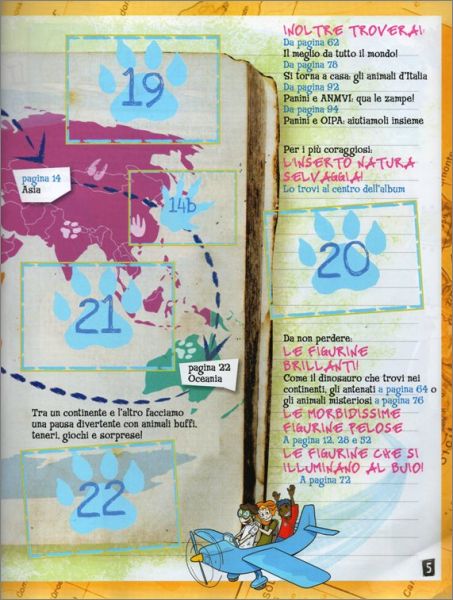 19
pagina 14
Asia
14b
21
pagina 22
Oceania
Tra un continente e l'altro facciamo
una pausa divertente con animali buffi,
teneri, giochi e sorprese!
22
INOLTRE TROVERAI:
Da pagina 62
Il meglio da tutto il mondo!
Da pagina 78
Si torna a casa: gli animali d'Italia
Da pagina 92
Panini e ANMVI: qua le zampe!
Da pagina 94
Panini e OIPA: aiutiamoli insieme
Per i più coraggiosi:
L'INSERTO NATURA
SELVAGGIA!
Lo trovi al centro dell'album
20
Da non perdere:
LE FIGURINE
BRILLANTI!
Come il dinosauro che trovi nei
continenti, gli antenati a pagina 64 o
gli animali misteriosi a pagina 76
LE MORBIDISSIME
FIGURINE PELOSE
A pagina 12, 28 e 52
LE FIGURINE CHE SI
ILLUMINANO AL BUIO!
A pagina 72
5